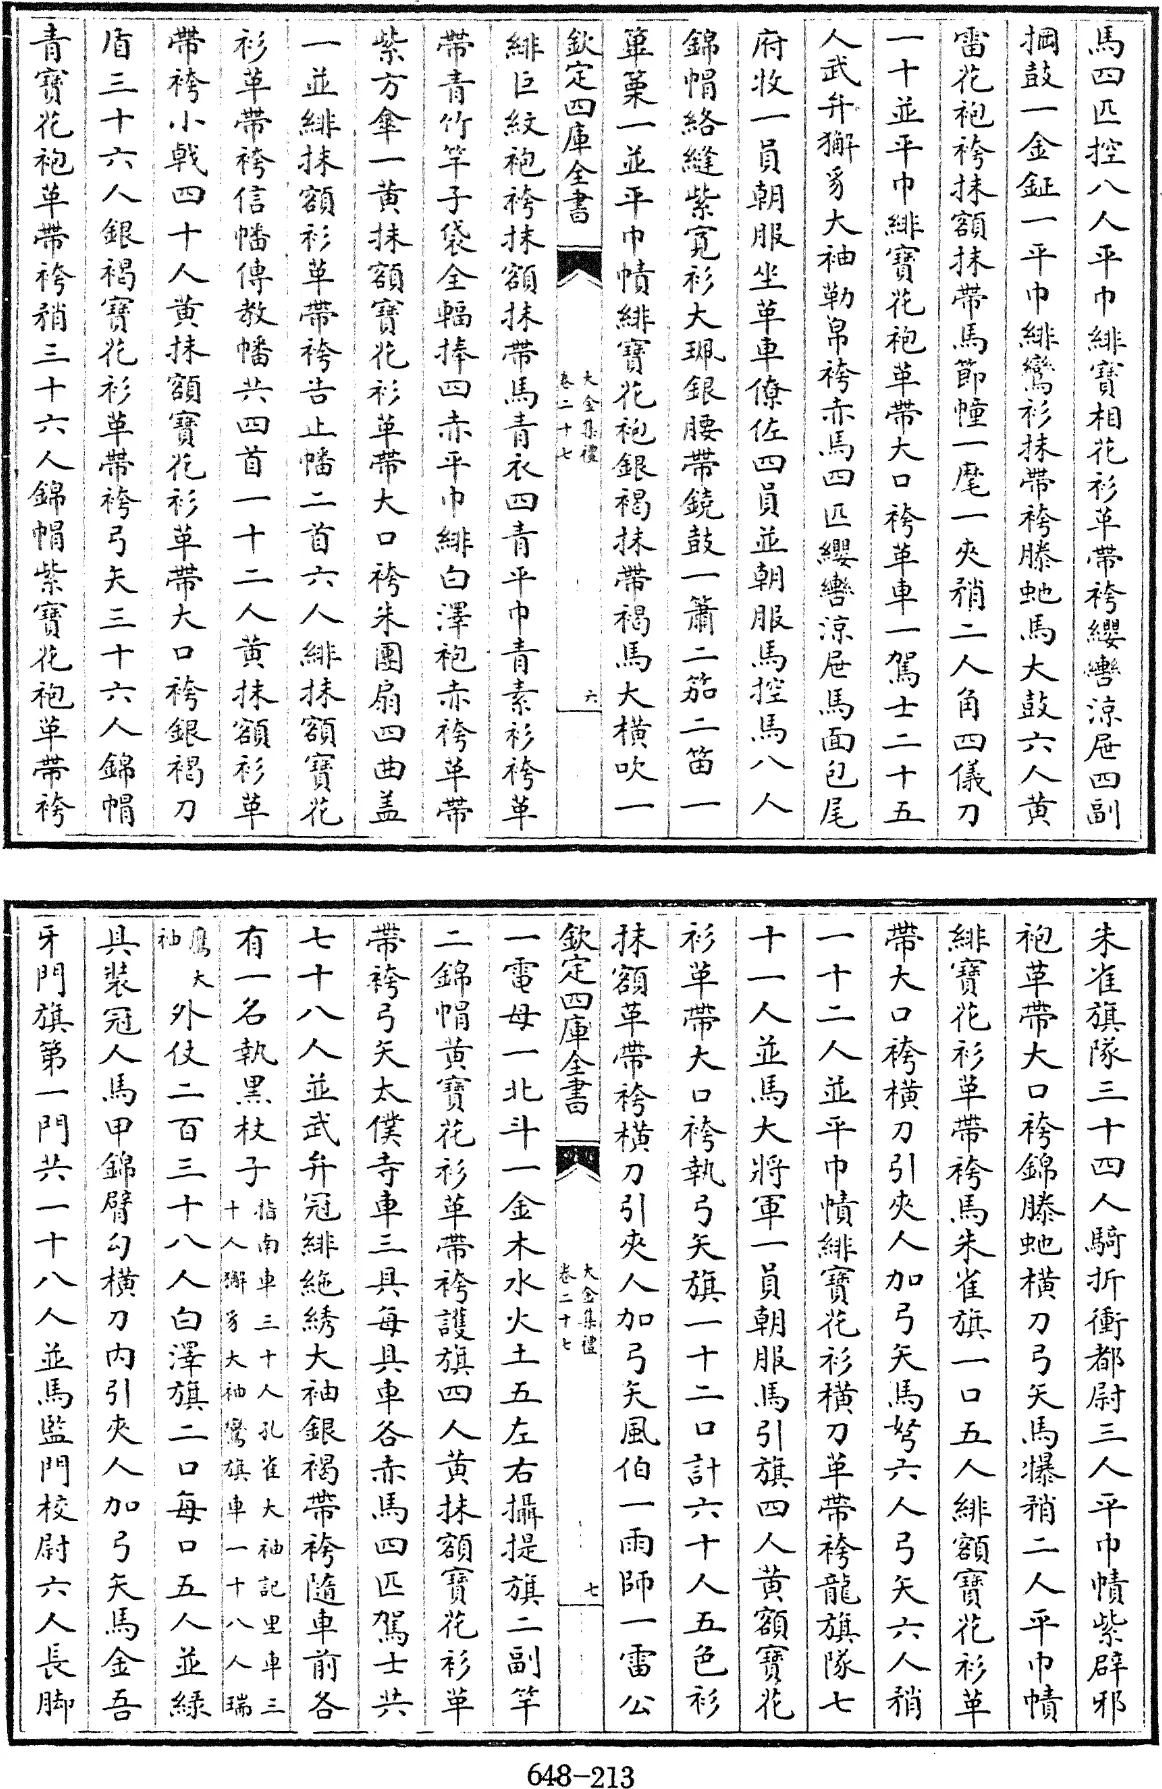 馬四匹控八人平巾緋寶相花衫革帶袴纓轡涼屉四副
掆鼓一金鉦一平巾緋鸞衫抹帶袴縢虵馬大鼓六人黃
雷花袍袴抹額抹帶馬節幢一麾一夾矟二人角四儀刀
一十並平巾緋寶花袍革帶大口袴革車一駕士二十五
人武弁獬豸大袖勒帛袴赤馬四匹纓轡涼屉馬面包尾
府牧一員朝服坐革車僚佐四員並朝服馬控馬八人
錦帽絡縫紫寬衫大珮銀腰帶鐃鼓一簫二笳二笛一
篳篥一並平巾幘緋寶花袍銀褐抹帶褐馬大橫吹一
欽定四庫全書
大金集禮
卷二十七
六
緋巨紋袍袴抹額抹帶馬青衣四青平巾青素衫袴革
帶青竹竿子袋全輻捧四赤平巾緋白澤袍赤袴革帶
紫方傘一黃抹額寶花衫革帶大口袴朱團扇四曲盖
一並緋抹額衫革帶袴告止幡二首六人緋抹額寶花
衫革帶袴信幡傳教幡共四首一十二人黃抹額衫革
帶袴小戟四十人黃抹額寶花衫革帶大口袴銀褐刀
盾三十六人銀褐寶花衫革帶袴弓矢三十六人錦帽
青寶花袍革帶袴矟三十六人錦帽紫寶花袍革帶袴
朱雀旗隊三十四人騎折衝都尉三人平巾幘紫辟邪
袍革帶大口袴錦縢虵橫刀弓矢馬爆矟二人平巾幘
緋寶花衫革帶袴馬朱雀旗一口五人緋額寶花衫革
帶大口袴橫刀引夾人加弓矢馬弩六人弓矢六人矟
一十二人並平巾幘緋寶花衫橫刀革帶袴龍旗隊七
十一人並馬大將軍一員朝服馬引旗四人黃額寶花
衫革帶大口袴執弓矢旗一十二口計六十人五色衫
抹額革帶袴橫刀引夾人加弓矢風伯一雨師一雷公
欽定四庫全書
大金集禮
卷二十七
七
一電母一北斗一金木水火土五左右攝提旗二副竿
二錦帽黃寶花衫革帶袴護旗四人黃抹額寶花衫革
帶袴弓矢太僕寺車三具每具車各赤馬四匹駕士共
七十八人並武弁冠緋絁綉大袖銀褐帶袴隨車前各
有一名執黑杖子指南車三十人孔雀大袖記里車三
十人獬豸大袖鸞旗車一十八人瑞
鷹大
袖外仗二百三十八人白澤旗二口每口五人並緑
具裝冠人馬甲錦臂勾橫刀內引夾人加弓矢馬金吾
牙門旗第一門共一十八人並馬監門校尉六人長脚
648-213